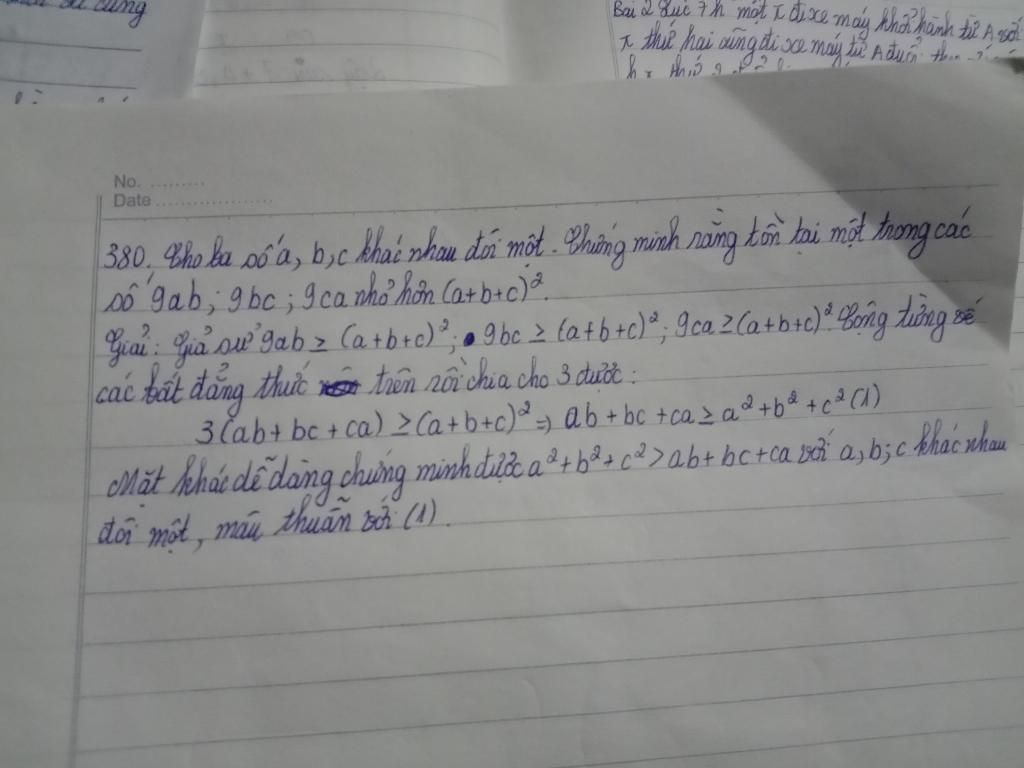 Bài 2 Lúc 7h một x đi xe máy khởi hành từ A với
x thứ hai cũng đi xe máy từ A đuổi
No. .........
Date ...................
380. Cho ba số a, b, c khác nhau đôi một. Chứng minh rằng tồn tại một trong các
số 9ab; 9bc; 9ca nhỏ hơn (a+b+c)².
Giải: Giả sử 9ab ≥ (a+b+c)²; 9bc ≥ (a+b+c)²; 9ca ≥ (a+b+c)². Cộng từng vế
các bất đẳng thức trên rồi chia cho 3 được:
3(ab+bc+ca) ≥ (a+b+c)² ⇒ ab+bc+ca ≥ a²+b²+c² (1)
Mặt khác dễ dàng chứng minh được a²+b²+c² > ab+bc+ca với a, b; c khác nhau
đôi một, mâu thuẫn với (1).